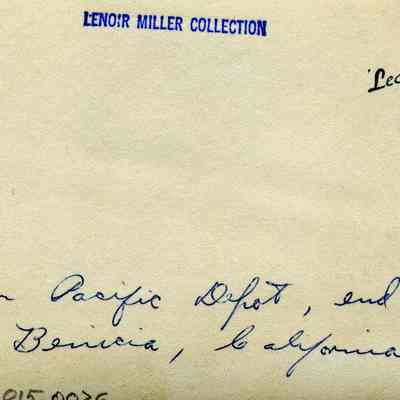 LENOIR MILLER COLLECTION
Pacific Depot, end
Benicia, California